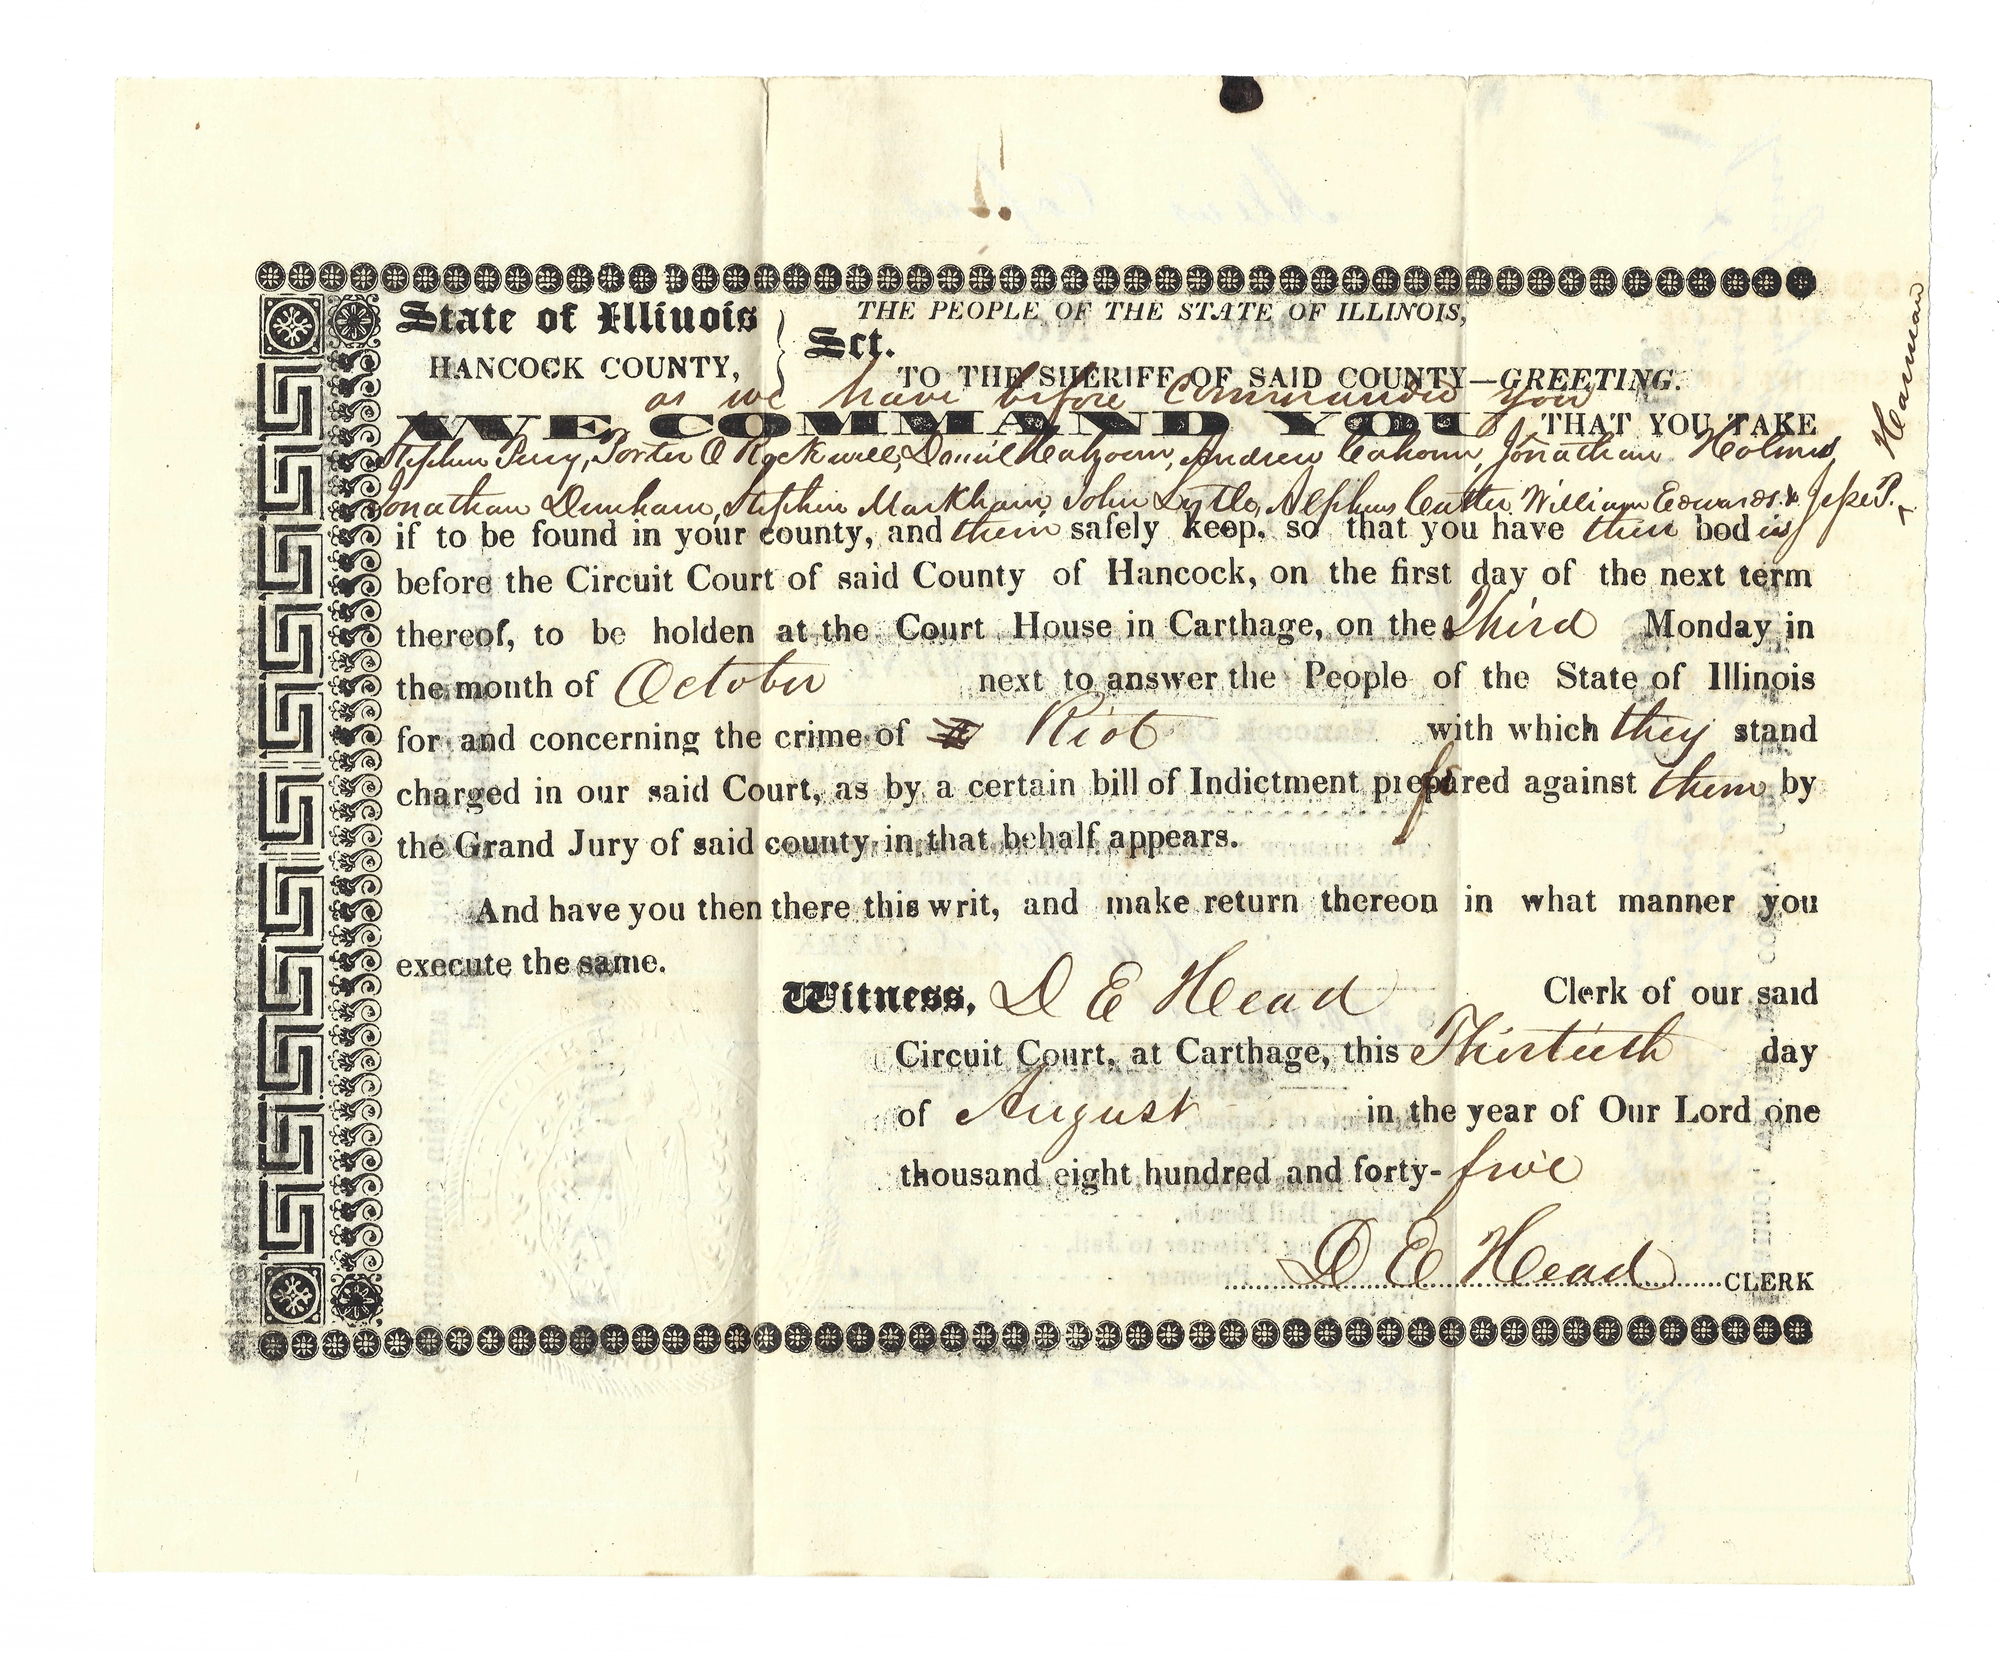 State of Illinois
HANCOCK COUNTY,
Sct.
THE PEOPLE OF THE STATE OF ILLINOIS,
TO THE SHERIFF OF SAID COUNTY—GREETING.
as we have before Commanded you
WE COMMAND YOU THAT YOU TAKE
Stephen Perry, Porter O Rockwell, Daniel Cahoon, Andrew Cahoon, Jonathan Holmes,
Jonathan Dunham, Stephen Markham, John Lytle, Alpheus Cutler, William Edwards & Jesse P. Harman
if to be found in your county, and them safely keep, so that you have their bodies
before the Circuit Court of said County of Hancock, on the first day of the next term
thereof, to be holden at the Court House in Carthage, on the Third Monday in
the month of October next to answer the People of the State of Illinois
for and concerning the crime of Riot with which they stand
charged in our said Court, as by a certain bill of Indictment prepared against them by
the Grand Jury of said county in that behalf appears.
And have you then there this writ, and make return thereon in what manner you
execute the same.
Witness, D E Head Clerk of our said
Circuit Court, at Carthage, this Thirtieth day
of August in the year of Our Lord one
thousand eight hundred and forty-five
D E Head CLERK